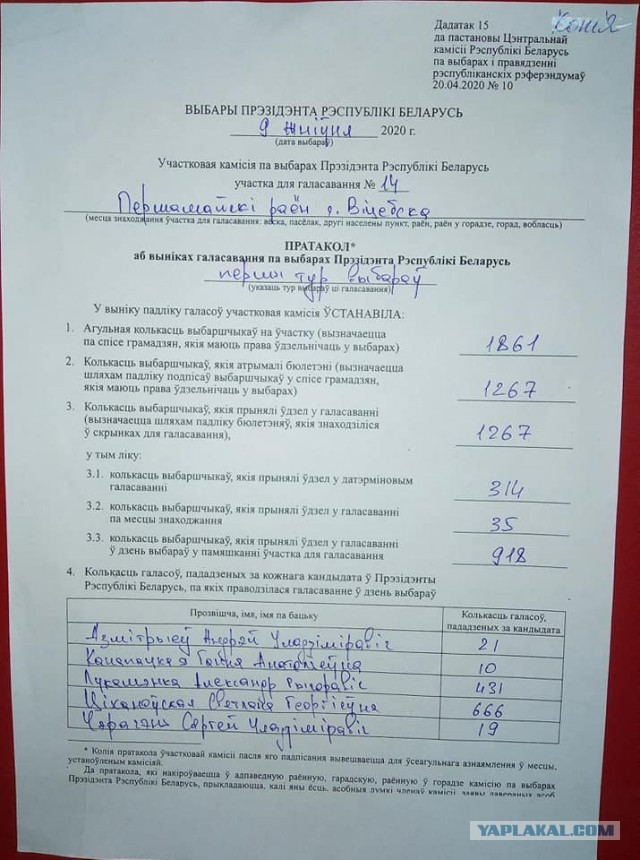 Копія
Дадатак 15
да пастановы Цэнтральнай
камісіі Рэспублікі Беларусь
па выбарах і правядзенні
рэспубліканскіх рэферэндумаў
20.04.2020 № 10
ВЫБАРЫ ПРЭЗІДЭНТА РЭСПУБЛІКІ БЕЛАРУСЬ
9 жніўня 2020 г.
(дата выбараў)
Участковая камісія па выбарах Прэзідэнта Рэспублікі Беларусь
участка для галасавання № 14
Першамайскі раён г. Віцебска
(месца знаходжання ўчастка для галасавання: вёска, пасёлак, другі населены пункт, раён, раён у горадзе, горад, вобласць)
ПРАТАКОЛ*
аб выніках галасавання па выбарах Прэзідэнта Рэспублікі Беларусь
першы тур выбараў
(указаць тур выбараў ці галасавання)
У выніку падліку галасоў участковая камісія ЎСТАНАВІЛА:
1. Агульная колькасць выбаршчыкаў на ўчастку (вызначаецца
па спісе грамадзян, якія маюць права ўдзельнічаць у выбарах) 1861
2. Колькасць выбаршчыкаў, якія атрымалі бюлетэні (вызначаецца
шляхам падліку подпісаў выбаршчыкаў у спісе грамадзян,
якія маюць права ўдзельнічаць у выбарах) 1267
3. Колькасць выбаршчыкаў, якія прынялі ўдзел у галасаванні
(вызначаецца шляхам падліку бюлетэняў, якія знаходзіліся
ў скрынках для галасавання), 1267
у тым ліку:
3.1. колькасць выбаршчыкаў, якія прынялі ўдзел у датэрміновым
галасаванні 314
3.2. колькасць выбаршчыкаў, якія прынялі ўдзел у галасаванні
па месцы знаходжання 35
3.3. колькасць выбаршчыкаў, якія прынялі ўдзел у галасаванні
ў дзень выбараў у памяшканні ўчастка для галасавання 918
4. Колькасць галасоў, пададзеных за кожнага кандыдата ў Прэзідэнты
Рэспублікі Беларусь, па якіх праводзілася галасаванне ў дзень выбараў
Прозвішча, імя, імя па бацьку Колькасць галасоў,
пададзеных за кандыдата
Азмітрыеў Андрэй Уладзіміравіч 21
Канапацкая Ганна Анатольеўна 10
Лукашэнка Александр Рыгоравіс 431
Ціханоўская Святлана Георгіеўна 666
Чэрачэнь Сяргей Уладзіміравіч 19
* Копія пратакола ўчастковай камісіі пасля яго падпісання вывешваецца для ўсеагульнага азнаямлення ў месцы,
устаноўленым камісіяй.
Да пратакола, які накіроўваецца ў адпаведную раённую, гарадскую, раённую ў горадзе камісію па выбарах
Прэзідэнта Рэспублікі Беларусь, прыкладаюцца, калі яны ёсць, асобныя думкі членаў камісіі, заявы давераных асоб
YAPLAKAL.COM